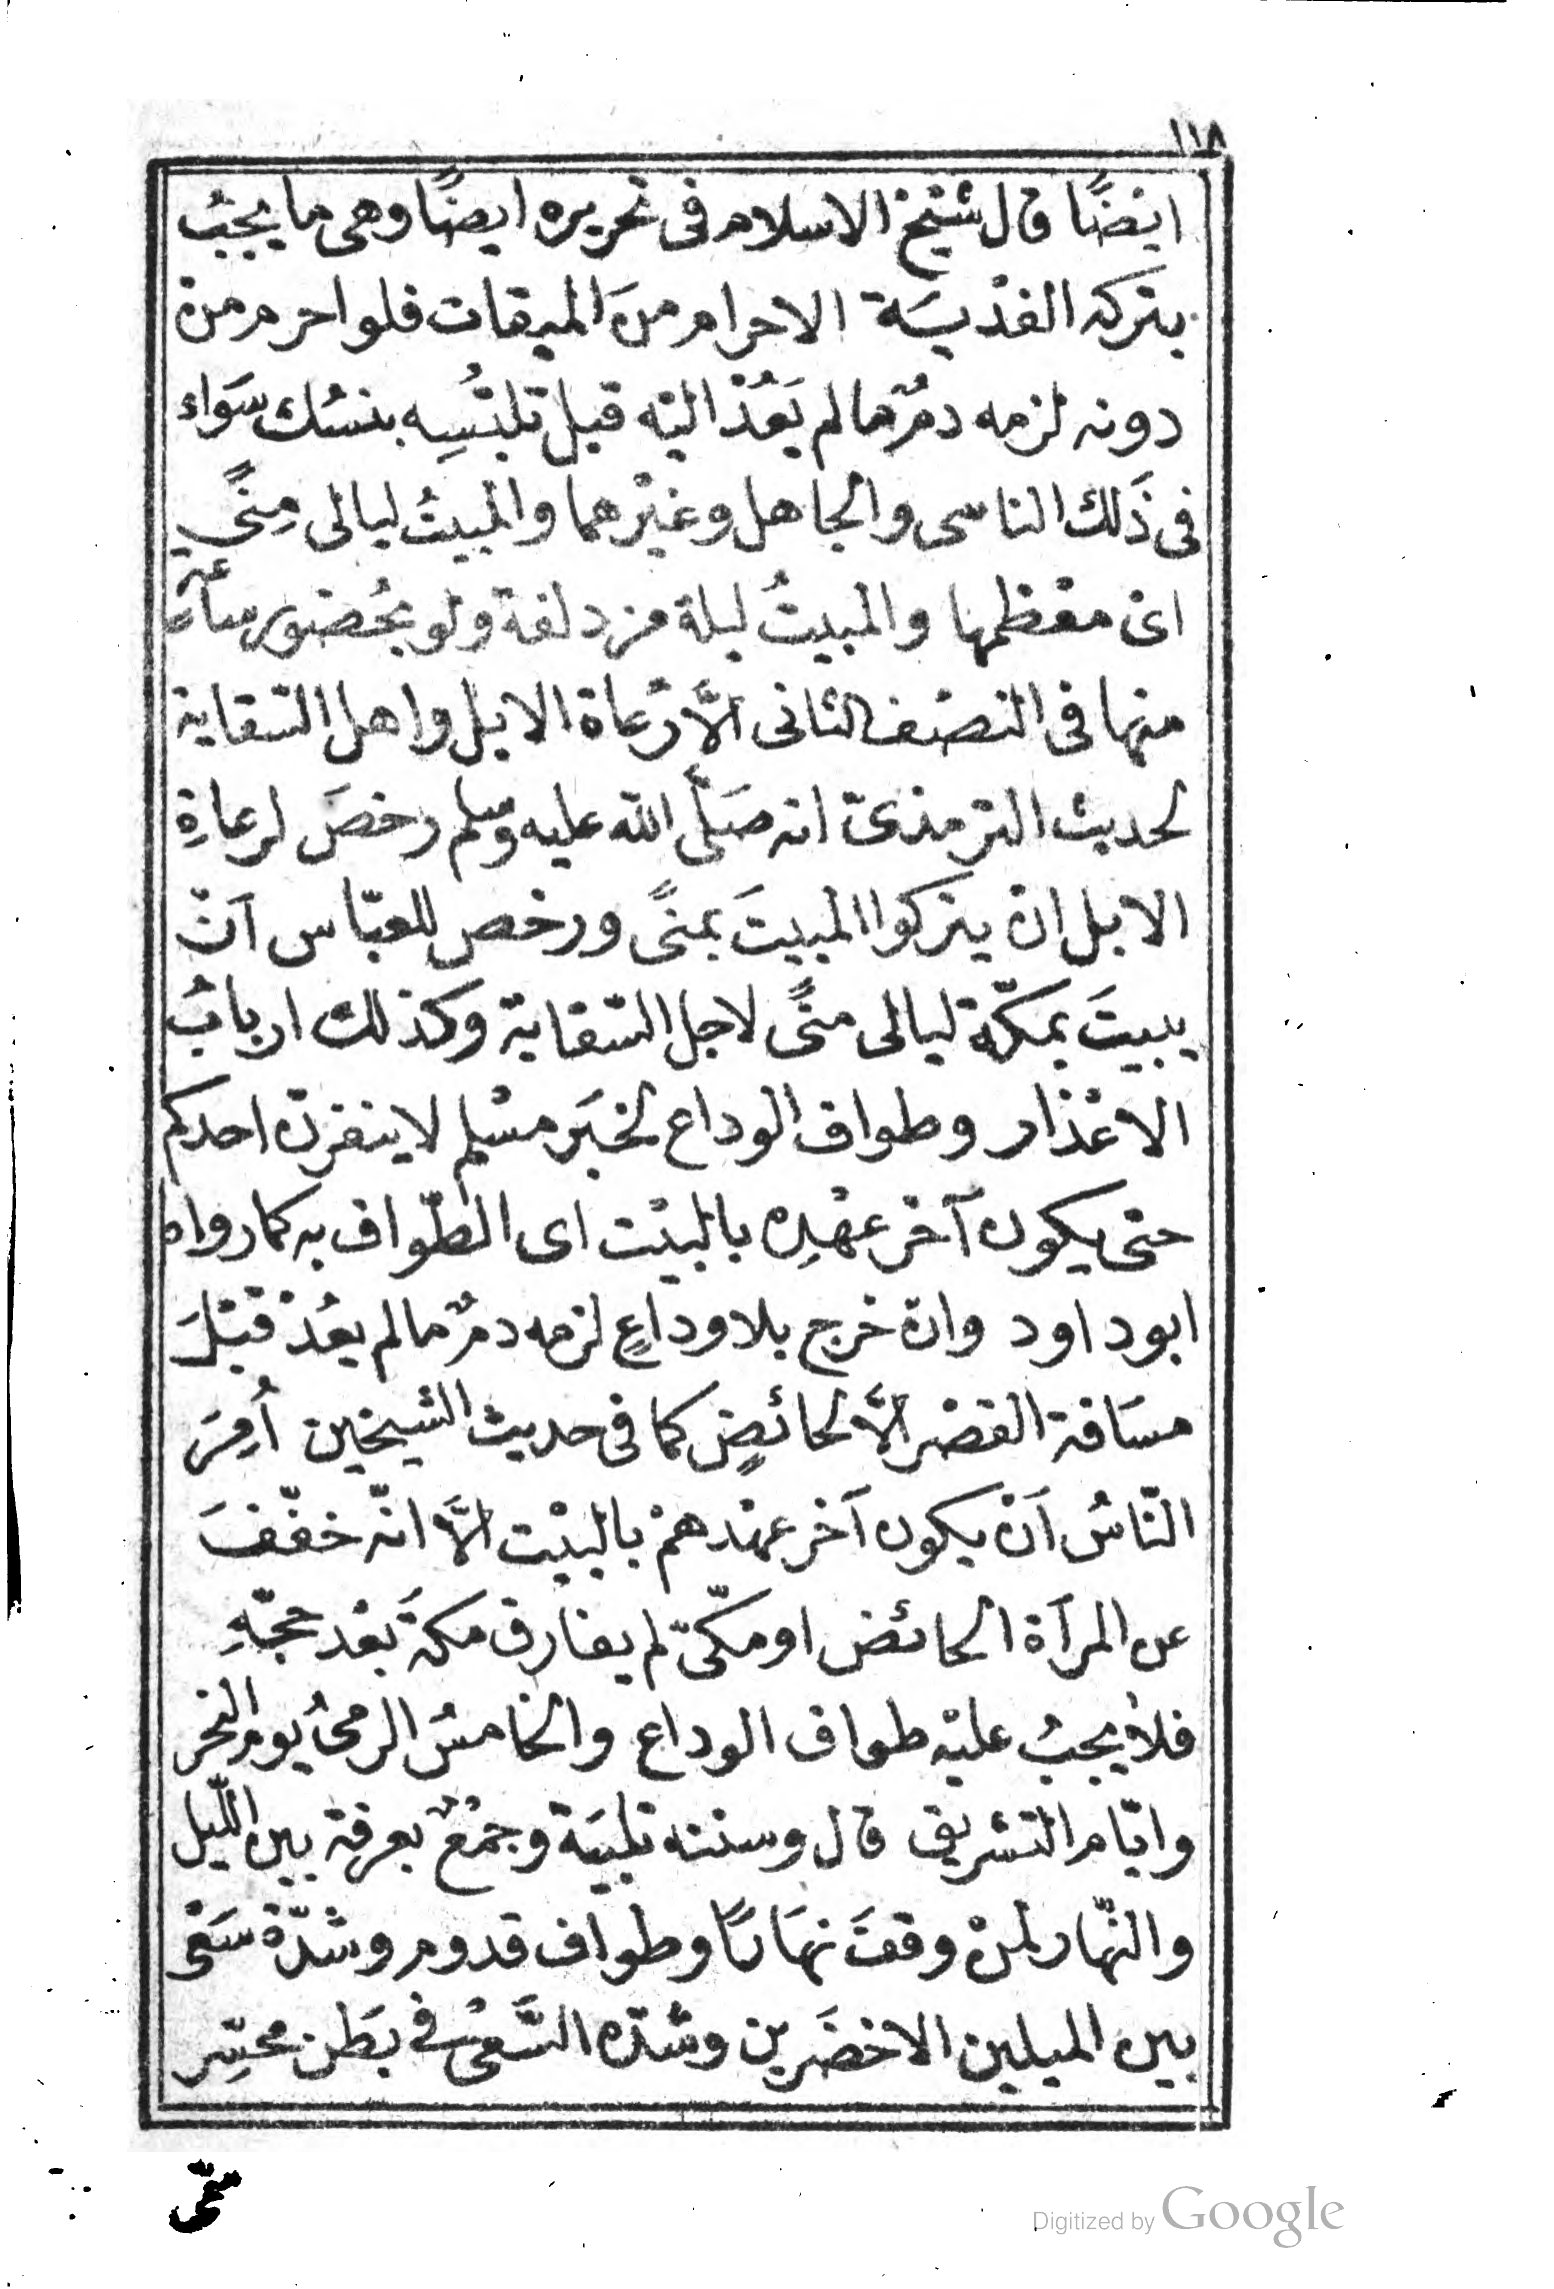 ١١٨
ايضًا قال شيخ الاسلام فى تحريره ايضًا وهى ما يجبُ
بتركه الفدْيَة الاحرام منَ الميقات فلو احرم من
دونه لزمه دمٌ ما لم يَعُدْ اليْه قبل تلبُّسِه بنسُك سَواء
فى ذَلك الناسى والجاهل وغيْرهما والمبيتُ ليالى مِنًى
اىْ معْظمها والمبيتُ ليلة مزدلفة ولو بحُضور ساعة
منها فى النصْف الثانى الَّا رُعاة الابل واهل السّقاية
لحديث الترمذىّ انه صَلّى الله عليه وسلم رخصَ لرعاةِ
الابل ان يتركوا المبيتَ بمنًى ورخص للعبّاس اَنْ
يبيتَ بمكّة ليالى منًى لاجل السّقاية وكذلك اربابُ
الاعْذار وطواف الوداع لخبَر مسْلم لا ينفرن احدكم
حتى يكون آخر عهْدِه بالبيْت اى الطّواف به كما رواه
ابو داود وان خرج بلا وداعٍ لزمه دمٌ ما لم يعُدْ قبْلَ
مسَافة القصْر الَّا لحائضٍ كما فى حديث الشيخين اُمِرَ
النّاسُ اَنْ يكون آخر عهْدهمْ بالبيْت الَّا انّه خفّفَ
عن المرآة الحائض او مكّىّ لم يفارق مكة بَعْد حجّهِ
فلا يجبُ عليْه طواف الوداع والخامسُ الرمىُ يوم النحر
وايّام التشريق قال وسننه تلبيَة وجمْعٌ بعرفة بين اللّيل
والنّهار لمنْ وقفَ نهَارًا وطواف قدوم وشدّة سَعْى
بين الميلين الاخضَرين وشدّه السَّعْى فى بطَن محسِّر
سَمّى
Digitized by Google